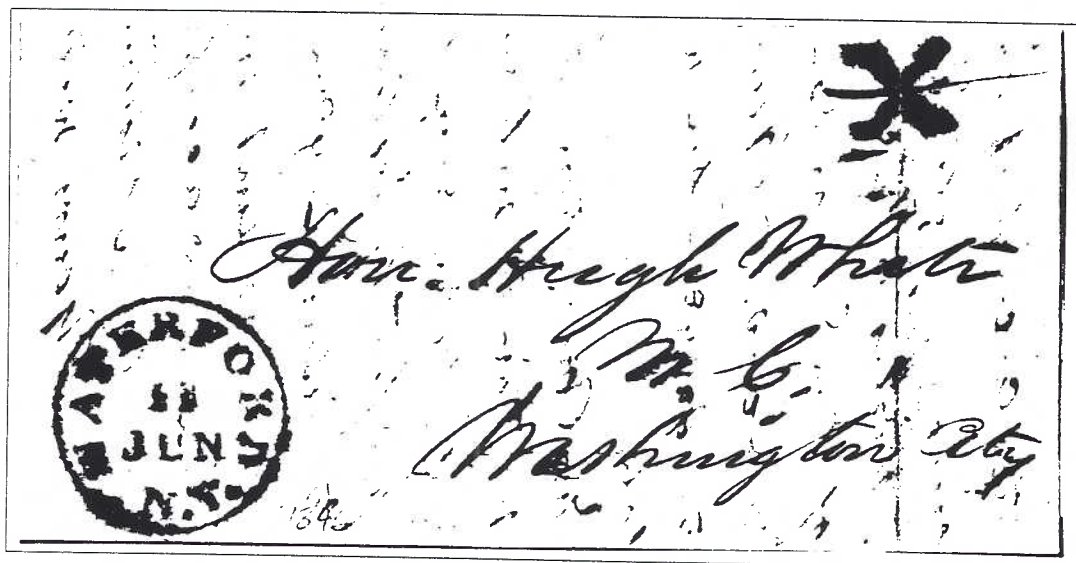 Hon. Hugh White
M. C.
Washington City
WATERFORD
11
JUN
N.Y.